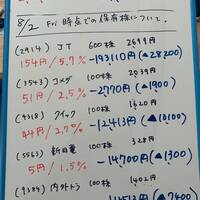 8/2 Fri 時点での保有株について。
(2914) JT 600株 2699円
154円/5.7% -193,110円(▲28200)
(3543) コメダ 100株 2,039円
51円/2.5% -2,770円(▲1900)
(4318) クイック 100株 1,620円
44円/2.7% -12,413円(▲10100)
(5563) 新日電 100株 328円
5円/1.5% -14700円(▲1300)
(9384) 内外トラ) 100株 1402円
(▲7400)